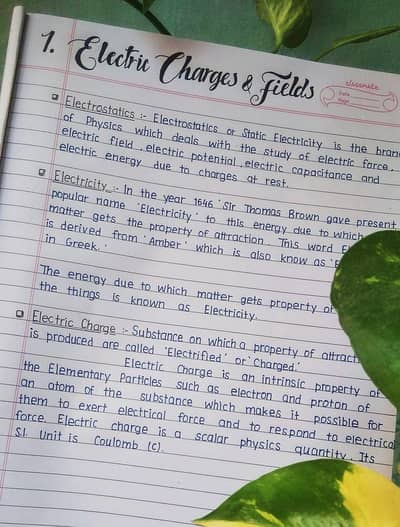 1. Electric Charges & Fields
classmate
Date
Page
Electrostatics :- Electrostatics or Static Electricity is the bran
of Physics which deals with the study of electric force,
electric field, electric potential, electric capacitance and
electric energy due to charges at rest.
Electricity :- In the year 1646 'Sir Thomas Brown gave present
popular name 'Electricity' to this energy due to which
matter gets the property of attraction. This word
is derived from 'Amber' which is also know as
in Greek.'
The energy due to which matter gets property of
the things is known as Electricity.
Electric Charge :- Substance on which a property of attract
is produced are called 'Electrified' or 'Charged.'
Electric Charge is an intrinsic property of
the Elementary Particles such as electron and proton of
an atom of the substance which makes it possible for
them to exert electrical force and to respond to electrical
force. Electric charge is a scalar physics quantity. Its
S.I. Unit is Coulomb (C).